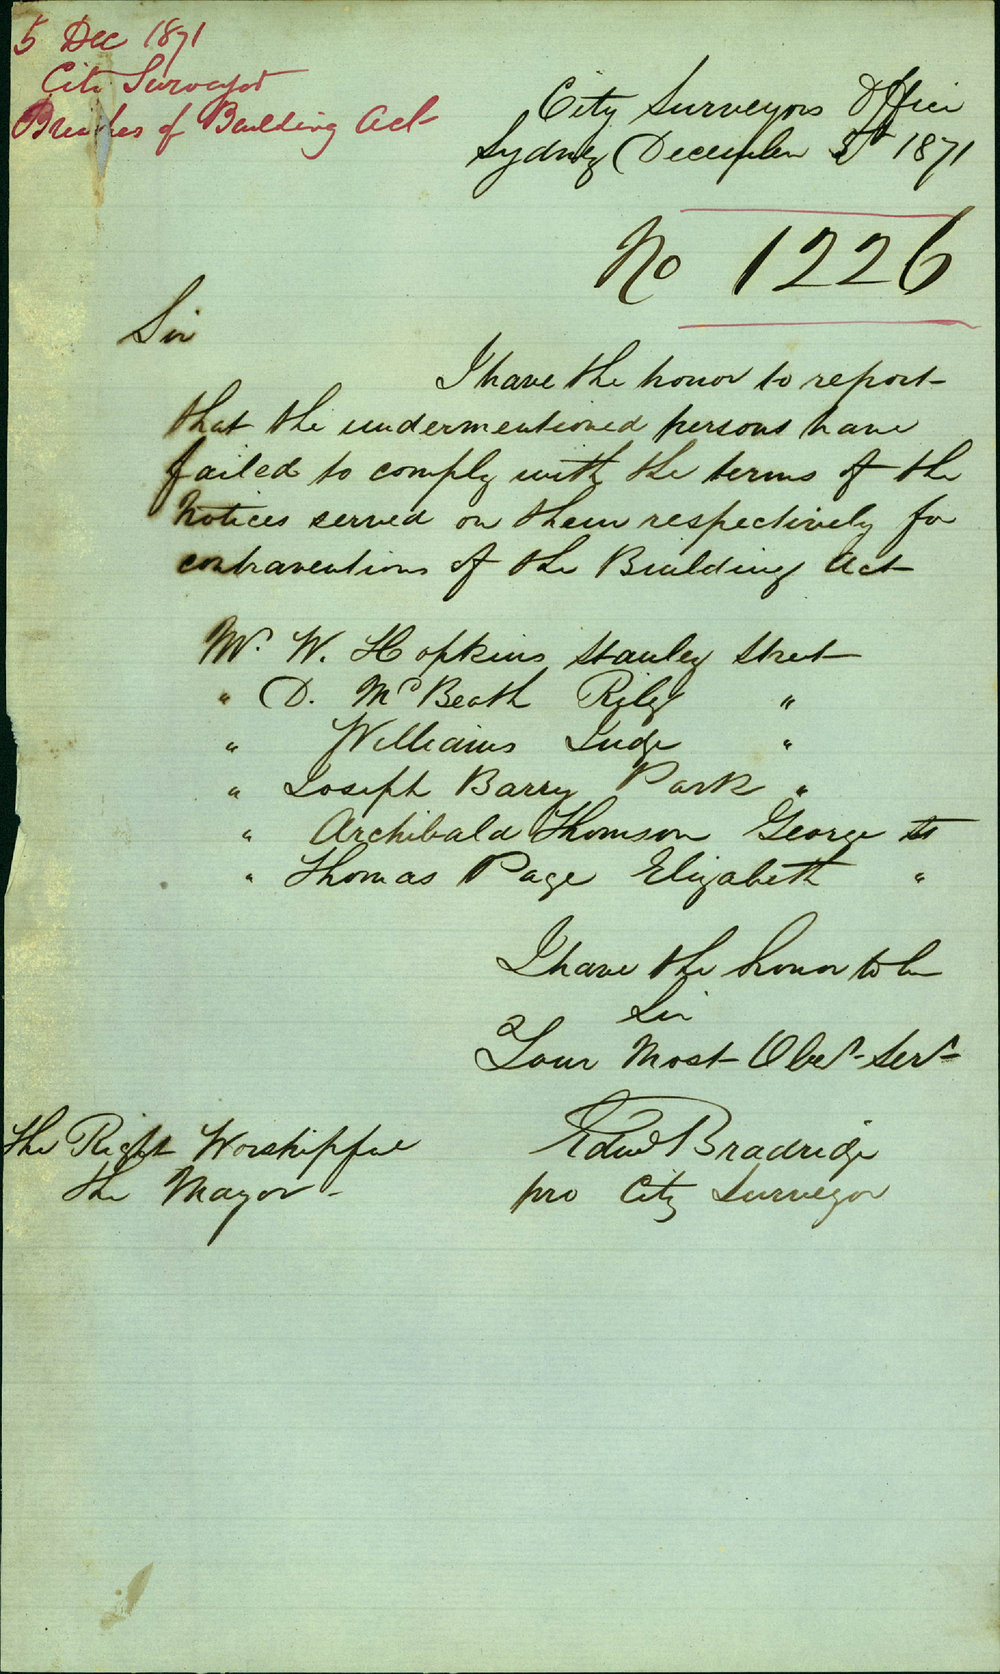 5 Dec 1871
City Surveyor
Breaches of Building Act
City Surveyors Office
Sydney December 5th 1871
No 1226
Sir
I have the honor to report
that the undermentioned persons have
failed to comply with the terms of the
Notices served on them respectively for
contraventions of the Building Act
Mr. W. Hopkins Stanley Street
" D. McBeath Riley "
" Williams Judge "
" Joseph Barry Park "
" Archibald Thomson George St
" Thomas Page Elizabeth "
I have the honor to be
Sir
Your Most Obet. Servt
Edwd Bradridge
pro City Surveyor
The Right Worshipful
the Mayor